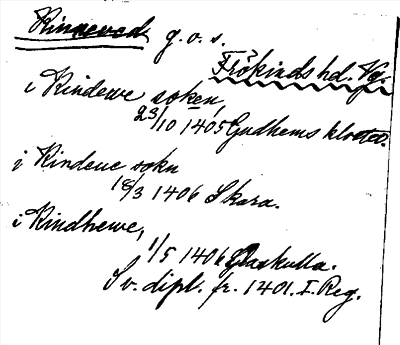 Kinneved g. o. s.
Frökinds hd. Vg.
i Kindewe soken,
23/10 1405 Gudhems kloster.
i Kindeue sokn
18/3 1406 Skara.
i Kindhewe,
1/5 1406 Aaskulla.
Sv. dipl. fr. 1401. I. Reg.